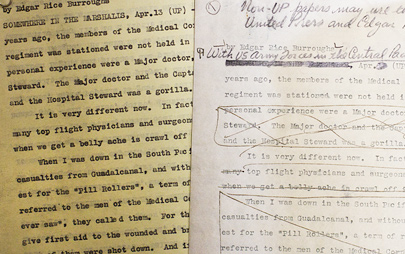 by Edgar Rice Burroughs
SOMEWHERE IN THE MARSHALLS, Apr.13 (UP)
years ago, the members of the Medical Cor
regiment was stationed were not held in
personal experience were a Major doctor,
Steward. The Major doctor and the Capta
and the Hospital Steward was a gorilla.
It is very different now. In fact
many top flight physicians and surgeons
when we get a belly ache is crawl off
When I was down in the South Paci
casualties from Guadalcanal, and with
est for the "Pill Rollers", a term of
referred to the men of the Medical Co
ever saw", they called them. For th
give first aid to the wounded and br
of them were shot down. And i
Non-UP papers may use
United Press and Edgar
by Edgar Rice Burroughs
With US Army Forces in the Central Pac
Apr.
years ago, the members of the Medical
regiment was stationed were not held i
personal experience were a Major docto
Steward. The Major doctor and the
and the Hospital Steward was a gorilla
It is very different now. In fac
many top flight physicians and surgeon
when we get a belly ache is crawl off i
When I was down in the South Pa
casualties from Guadalcanal, and wit
est for the "Pill Rollers", a term o
referred to the men of the Medical C